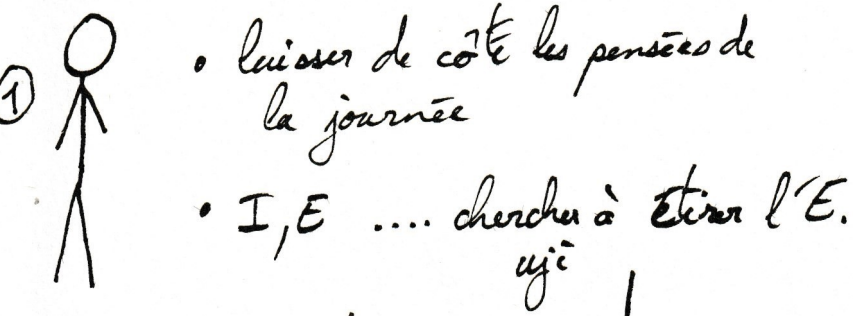 ①
• laisser de côté les pensées de
la journée
• I, E .... chercher à étirer l'E.
ujï